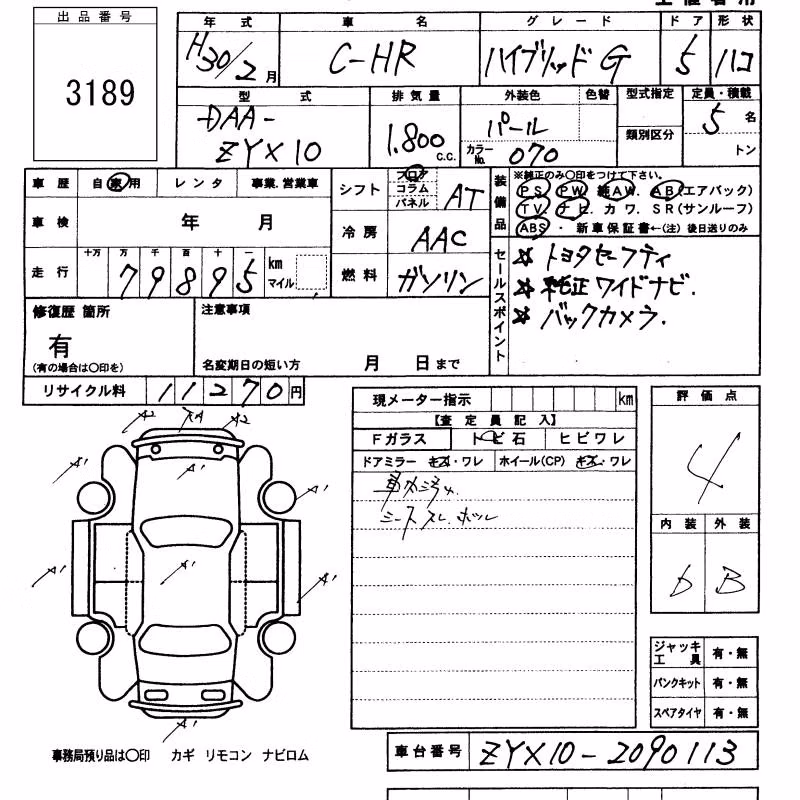 出品番号
3189
年式 車名 グレード ドア 形状
H30/2月 C-HR ハイブリッド G 5 ハコ
型式 排気量 外装色 色替 型式指定 定員・積載
DAA-ZYX10 1.800c.c. パール 類別区分 5名
カラーNo. 070 トン
車歴 自家用 レンタ 事業.営業車
シフト フロア コラム パネル AT
装備品 ※純正のみ〇印をつけて下さい。
PS PW 純AW. AB(エアバック)
TV ナビ. カワ. SR(サンルーフ)
ABS ・ 新車保証書←(注) 後日送りのみ
車検 年 月
冷房 AAC
走行 十万 万 千 百 十 一
79895 km マイル
燃料 ガソリン
セールスポイント
☆ トヨタセーフティ
☆ 純正ワイドナビ.
☆ バックカメラ.
修復歴 箇所
有
(有の場合は〇印を)
注意事項
名変期日の短い方 月 日まで
リサイクル料 11270円
現メーター指示 km
【査定員記入】
Fガラス トビ石 ヒビワレ
ドアミラー キズ・ワレ ホイール(CP) キズ・ワレ
シートスレ.
評価点
4
内装 外装
b B
A2 A2
A' A' A'
A' A' A'
A'
ジャッキ工具 有・無
パンクキット 有・無
スペアタイヤ 有・無
事務局預り品は〇印 カギ リモコン ナビロム
車台番号 ZYX10-2090113